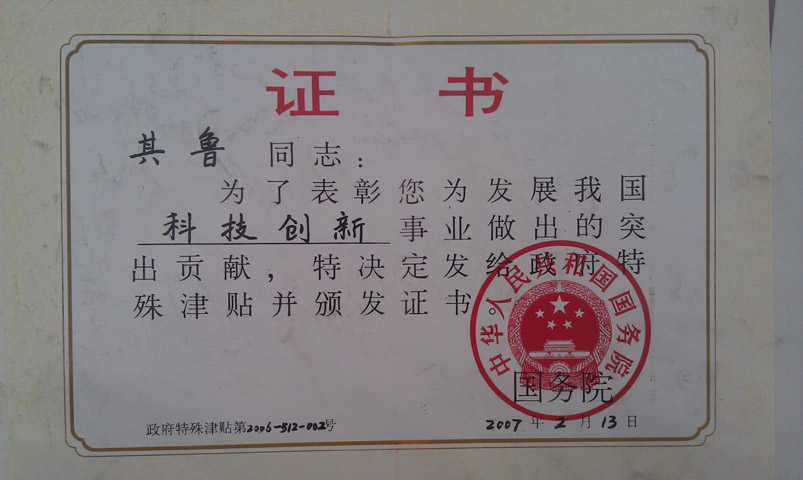 证书
其鲁 同志：
为了表彰您为发展我国
科技创新事业做出的突
出贡献，特决定发给政府特
殊津贴并颁发证书。
中华人民共和国国务院
国务院
政府特殊津贴第2006-512-002号
2007年2月13日